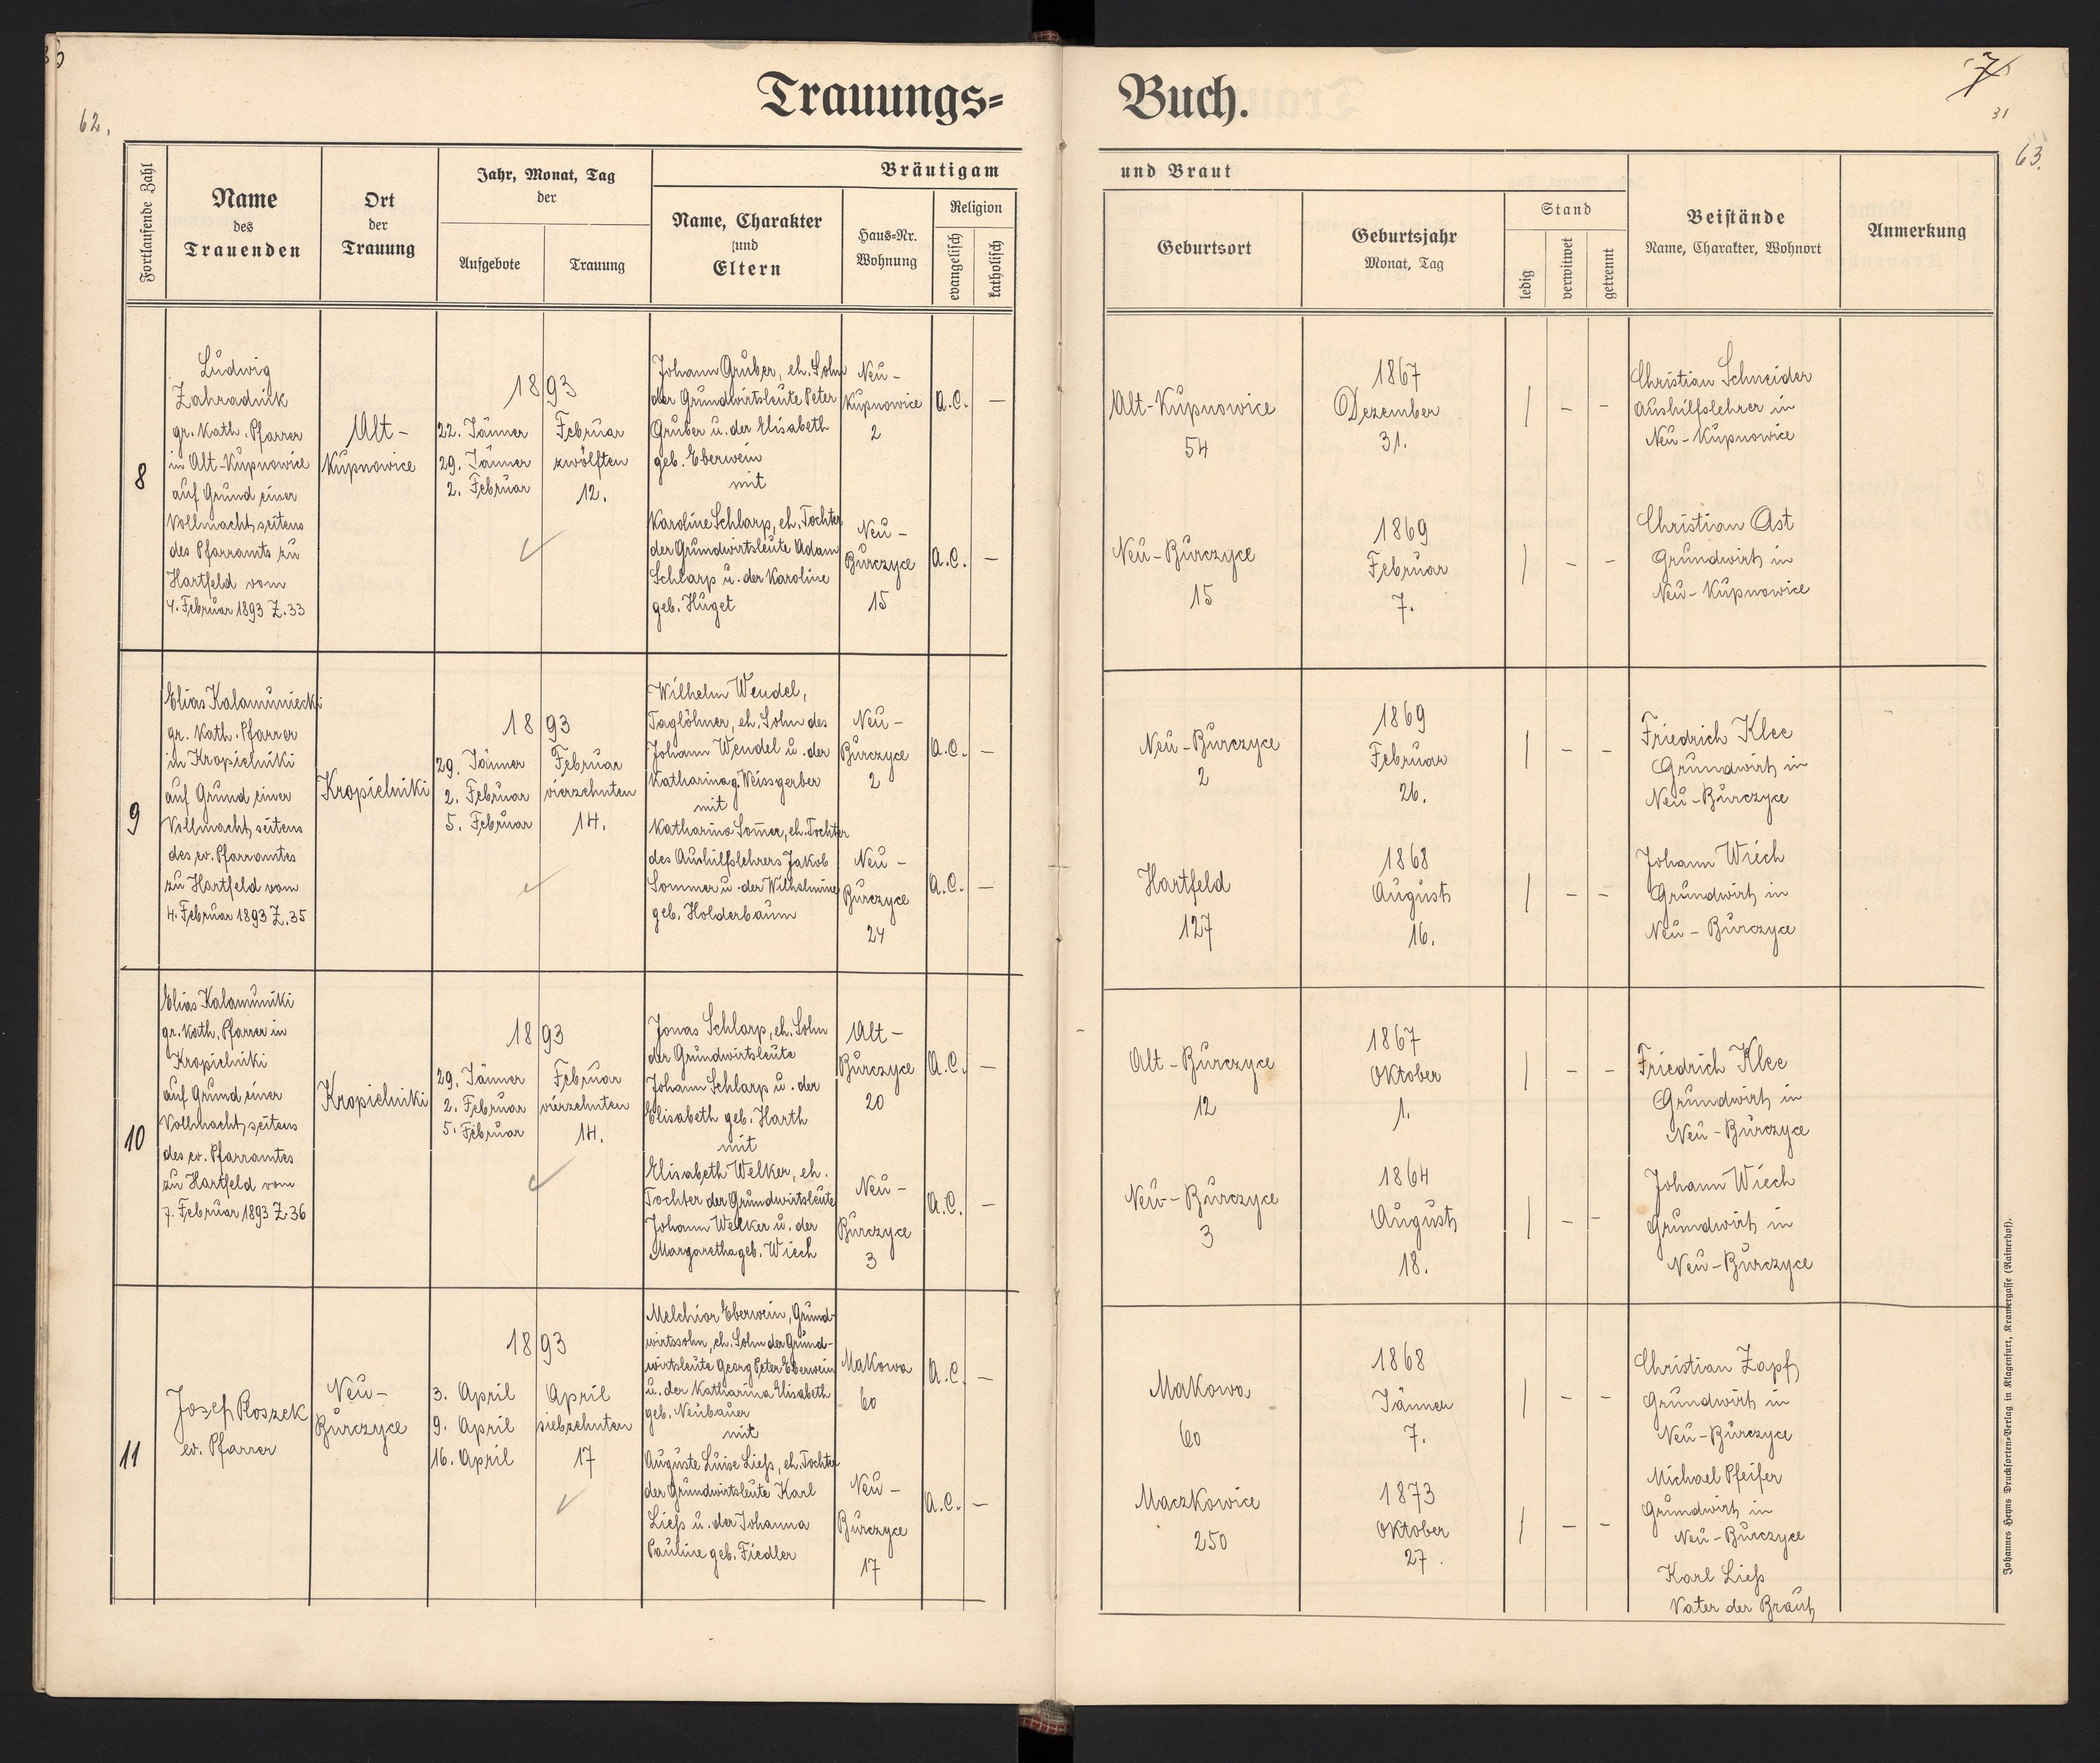 62.
Trauungs=
Fortlaufende Zahl
Name
des
Trauenden
Ort
der
Trauung
Jahr, Monat, Tag
der
Aufgebote
Trauung
Bräutigam
Name, Charakter
und
Eltern
Haus=Nr.
Wohnung
Religion
evangelisch
katholisch
8
Ludwig
Zahradnik
gr. kath. Pfarrer
in Alt-Kupnowice
auf Grund einer
Vollmacht seitens
des Pfarramts zu
Hartfeld vom
4. Februar 1893 Z. 33
Alt-
Kupnowice
1893
22. Jänner
29. Jänner
2. Februar
Februar
zwölften
12.
Johann Gruber, eh. Sohn
der Grundwirtsleute Peter
Gruber u. der Elisabeth
geb. Eberwein
mit
Karoline Schlarp, eh. Tochter
der Grundwirtsleute Adam
Schlarp u. der Karoline
geb. Huget
Neu-
Kupnowice
2
A.C. –
Neu-
Burczyce
15
A.C. –
9
Elias Kalamuniecki
gr. kath. Pfarrer
in Kropielniki
auf Grund einer
Vollmacht seitens
des ev. Pfarramtes
zu Hartfeld vom
4. Februar 1893 Z. 35
Kropielniki
1893
29. Jänner
2. Februar
5. Februar
Februar
vierzehnten
14.
Wilhelm Wendel,
Taglöhner, eh. Sohn des
Johann Wendel u. der
Katharina g. Weissgerber
mit
Katharina Som̄er, eh. Tochter
des Aushilfslehrers Jakob
Sommer u. der Wilhelmine
geb. Holderbaum
Neu-
Burczyce
2
A.C. –
Neu-
Burczyce
24
A.C. –
10
Elias Kalamuniki
gr. kath. Pfarrer in
Kropielniki
auf Grund einer
Vollmacht seitens
des ev. Pfarramtes
zu Hartfeld vom
7. Februar 1893 Z. 36
Kropielniki
1893
29. Jänner
2. Februar
5. Februar
Februar
vierzehnten
14.
Jonas Schlarp, eh. Sohn
der Grundwirtsleute
Johann Schlarp u. der
Elisabeth geb. Harth
mit
Elisabeth Welker, eh.
Tochter der Grundwirtsleute
Johann Welker u. der
Margaretha geb. Wiech
Alt-
Burczyce
20
A.C. –
Neu-
Burczyce
3
A.C. –
11
Josef Roszek
ev. Pfarrer
Neu-
Burczyce
1893
3. April
9. April
16. April
April
siebzehnten
17
Melchior Eberwein, Grund-
wirtssohn, eh. Sohn der Grund-
wirtsleute Georg Peter Eberwein
u. der Katharina Elisabeth
geb. Neubauer
mit
Auguste Luise Liess, eh. Tochter
der Grundwirtsleute Karl
Liess u. der Johanna
Pauline geb. Fiedler
Makowa
60
A.C. –
Neu-
Burczyce
17
A.C. –
Buch.
7
31
63.
und Braut
Geburtsort
Geburtsjahr
Monat, Tag
Stand
ledig
verwitwet
getrennt
Beistände
Name, Charakter, Wohnort
Anmerkung
Alt-Kupnowice
54
1867
Dezember
31.
/ – –
Christian Schneider
Aushilfslehrer in
Neu-Kupnowice
Neu-Burczyce
15
1869
Februar
7.
/ – –
Christian Ast
Grundwirth in
Neu-Kupnowice
Neu-Burczyce
2
1869
Februar
26.
/ – –
Friedrich Klee
Grundwirth in
Neu-Burczyce
Hartfeld
127
1868
August
16.
/ – –
Johann Wiech
Grundwirth in
Neu-Burczyce
Alt-Burczyce
12
1867
Oktober
1.
/ – –
Friedrich Klee
Grundwirth in
Neu-Burczyce
Neu-Burczyce
3
1864
August
18.
/ – –
Johann Wiech
Grundwirth in
Neu-Burczyce
Makowa
60
1868
Jänner
7.
/ – –
Christian Zapf
Grundwirth in
Neu-Burczyce
Maczkowice
250
1873
Oktober
27.
/ – –
Michael Pfeifer
Grundwirth in
Neu-Burczyce
Karl Liess
Vater der Braut
Johannes Heyns Drucksorten=Verlag in Klagenfurt, Kramergasse (Rainerhof).